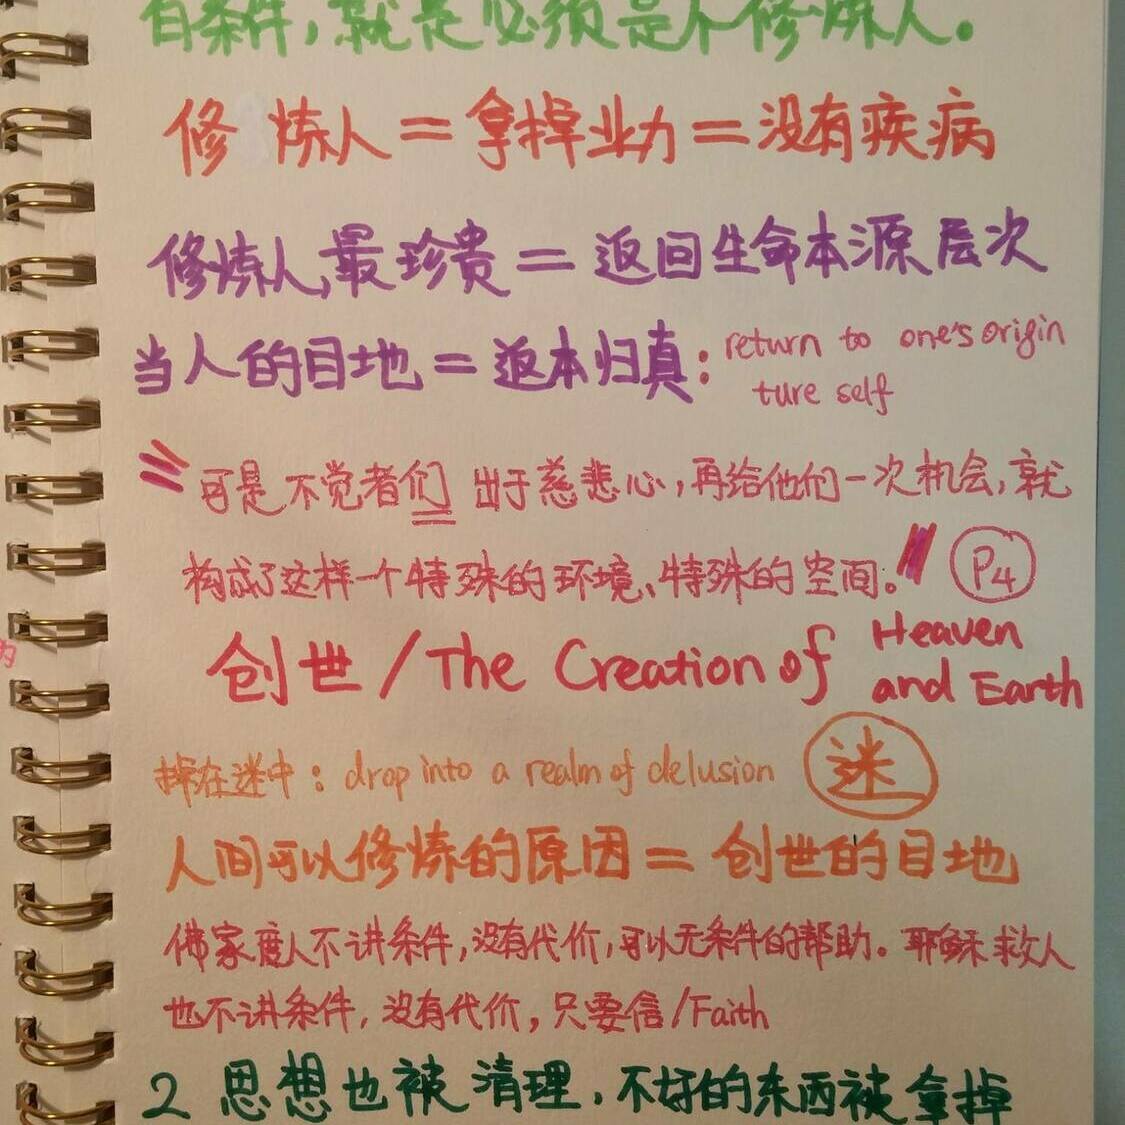 有条件,就是必须是个修炼人。
修炼人=拿掉业力=没有疾病
修炼人,最珍贵=返回生命本源层次
当人的目地=返本归真:return to one's origin
ture self
"可是不觉者们出于慈悲心,再给他们一次机会,就
构成了这样一个特殊的环境、特殊的空间。" P4
创世/The Creation of Heaven
and Earth
掉在迷中:drop into a realm of delusion 迷
人间可以修炼的原因=创世的目地
佛家度人不讲条件,没有代价,可以无条件的帮助。耶稣救人
也不讲条件,没有代价,只要信/Faith
2 思想也被清理,不好的东西被拿掉